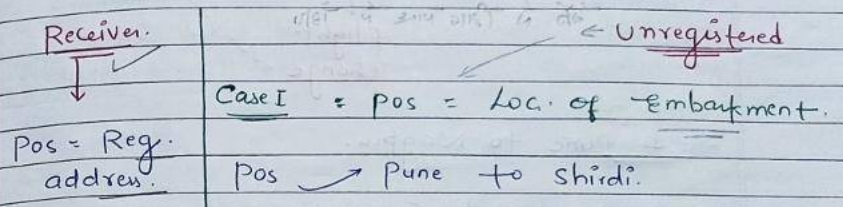 Receiver. ← Unregistered
Case I : Pos = Loc. of Embarkment.
Pos = Reg. address.
Pos → Pune to Shirdi.